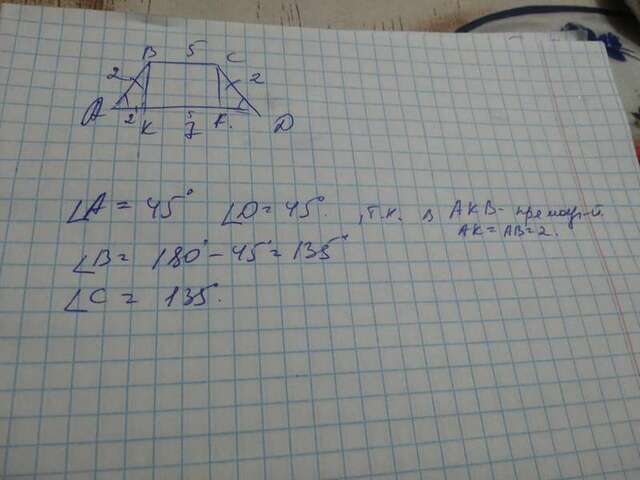 B 5 C
2 2
A 2 K 7 F D
∠A = 45° ∠D = 45°. , т.к. в AKB - прямоуг-й.
AK = AB = 2.
∠B = 180° - 45° = 135°
∠C = 135.